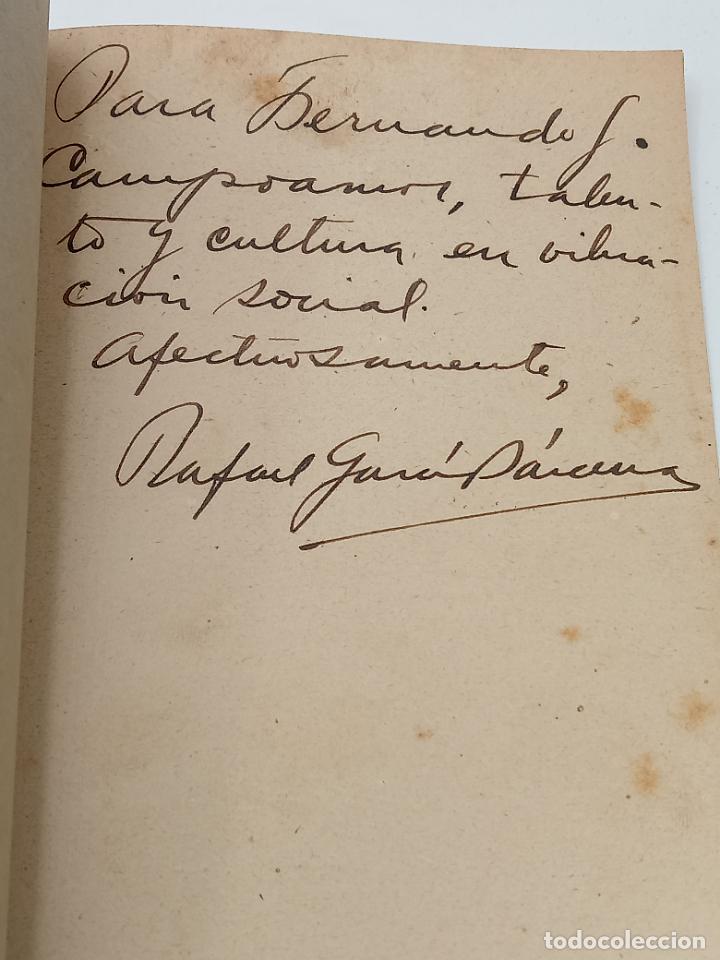 Para Fernando G.
Campoamor, talen-
to y cultura en vibra-
ción social.
Afectuosamente,
Rafael García Bárcena
todocoleccion